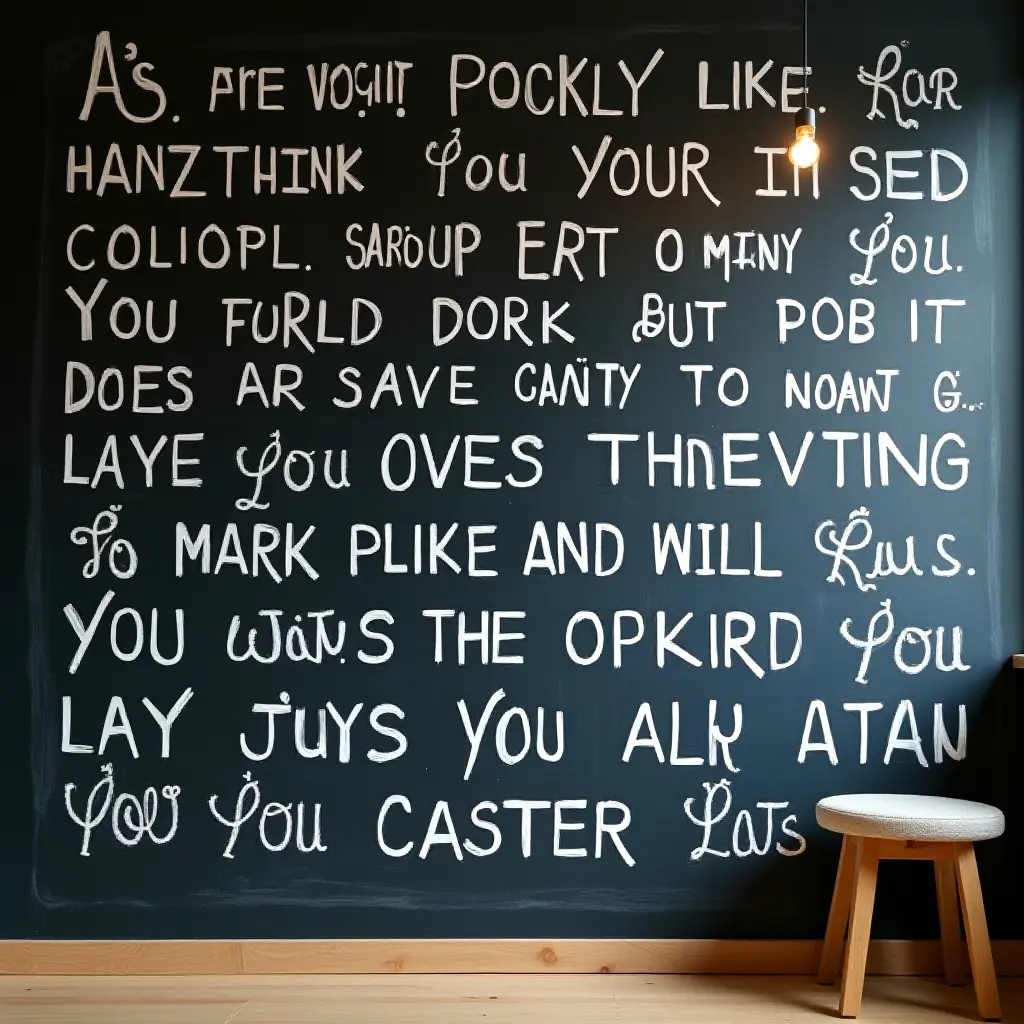 A's. ARE POCKLY LIKE.
HANZTHINK YOU YOUR SED
COLIOPL. SAROUP ERT O MINY YOU.
YOU FURLD DORK BUT POB IT
DOES AR SAVE CANTY TO NOAWT G...
LAYE YOU OVES THNEVTING
MARK PLIKE AND WILL
YOU THE OPKIRD YOU
LAY JUYS YOU ATAN
YOU CASTER